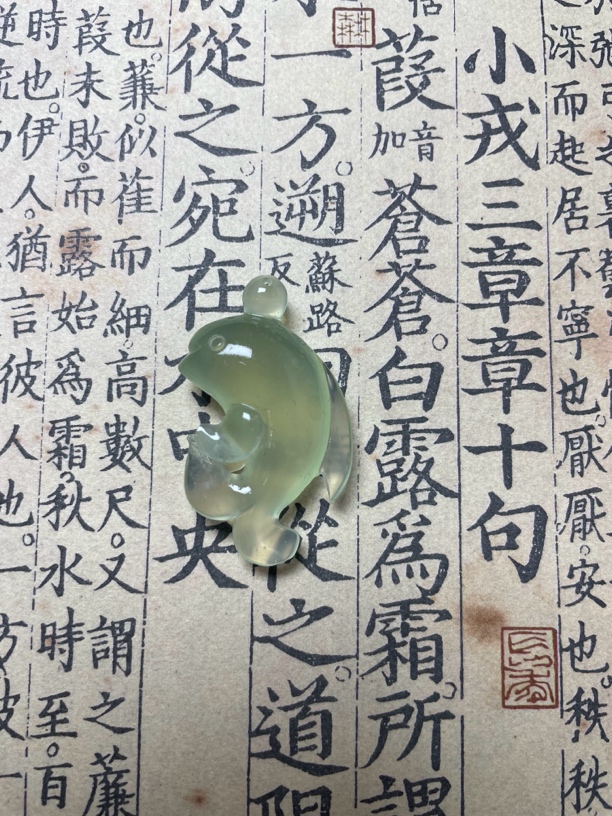 深而起居不寧也厭厭。安也秩秩
小戎三章章十句
葭音加蒼蒼。白露爲霜。所謂
一方。遡蘇路反從之。道阻
從之。宛在央
也。蒹。似萑而細高數尺。又謂之薕
葭未敗。而露始爲霜。秋水時至。百
時也。伊人。猶言彼人也。一方彼一